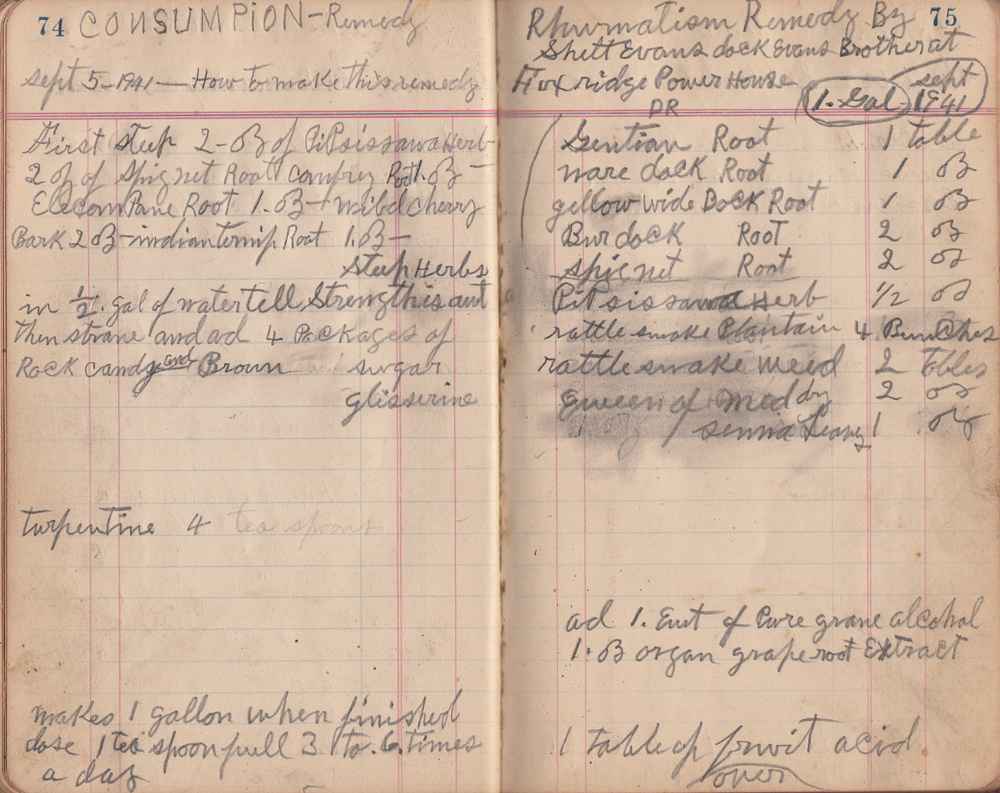 74 CONSUMPION-Remedy
sept 5-1941—How to make this remedy
First steep 2-oz of Pitsissawa Herb
2 oz of Spignet Root comfrey Root 1.oz-
Elecompane Root 1.oz-wild cherry
Bark 2 oz-indian ternip Root 1.oz-
Steep Herbs
in 1/2. gal of water tell Strength is out
then strane and ad 4 Packages of
Rock candy and Brown sugar
glisserine
turpentine 4 tea spoons
makes 1 gallon when finished
dose 1 tea spoonfull 3 to.6.times
a day
Rhumatism Remedy By 75
Shett Evans dock Evans Brother at
ridge Power House
DR 1.Gal sept 1941
Gentian Root 1 table
nare dock Root 1 oz
yellow wide Dock Root 1 oz
Burdock Root 2 oz
spignet Root 2 oz
Pitsissawa Herb 1/2 oz
rattle snake Plantain 4 Bunches
rattle snake weed 2 Tbles
queen of meddy 2 oz
senna Leavs 1 oz
ad 1. of Pure grane alcohol
1.oz organ grape root Extract
1 table of fruit acid
over